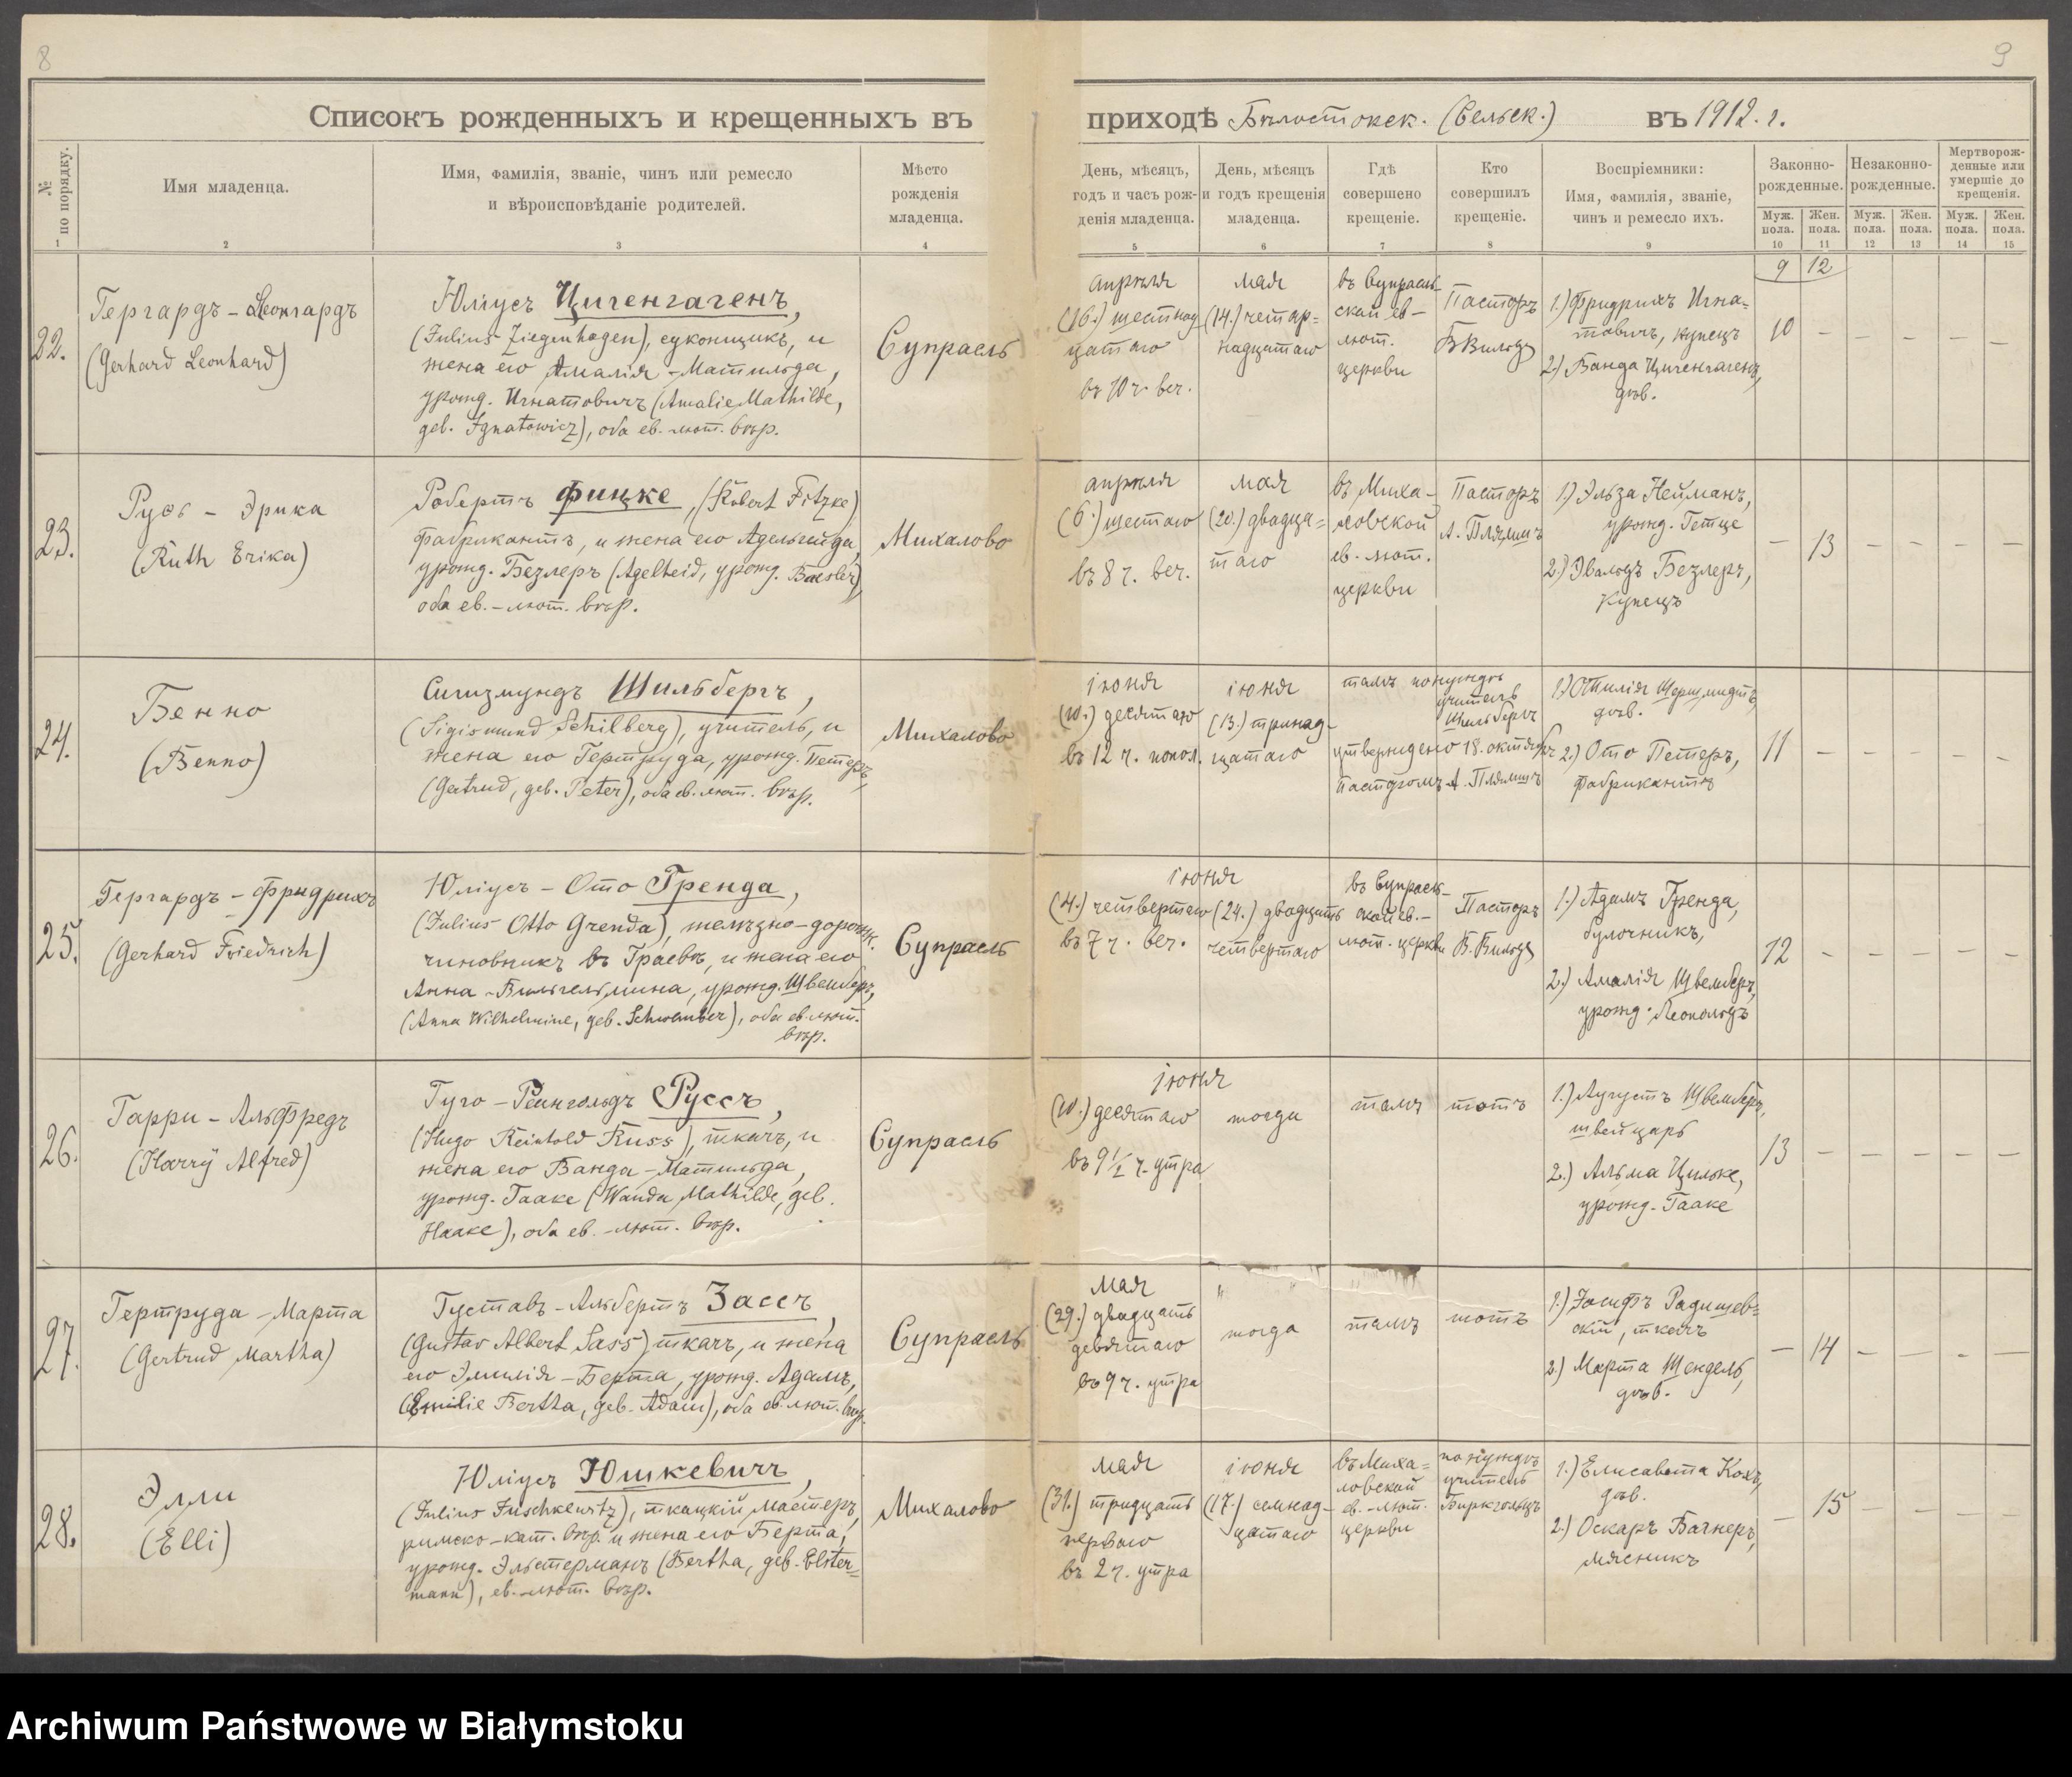 8
9
Списокъ рожденныхъ и крещенныхъ въ приходѣ Бѣлостокск. (Сельск.) въ 1912. г.
№ по порядку.
Имя младенца.
Имя, фамилія, званіе, чинъ или ремесло
и вѣроисповѣданіе родителей.
Мѣсто
рожденія
младенца.
День, мѣсяцъ,
годъ и часъ рож-
денія младенца.
День, мѣсяцъ
и годъ крещенія
младенца.
Гдѣ
совершено
крещеніе.
Кто
совершилъ
крещеніе.
Воспріемники:
Имя, фамилія, званіе,
чинъ и ремесло ихъ.
Законно-
рожденные.
Незаконно-
рожденные.
Мертворож-
денные или
умершіе до
крещенія.
Муж. пола.
Жен. пола.
Муж. пола.
Жен. пола.
Муж. пола.
Жен. пола.
1 2 3 4 5 6 7 8 9 10 11 12 13 14 15
9 12
22.
Гергардъ - Леонгардъ
(Gerhard Leonhard)
Юліусъ Цигенгагенъ,
(Julius Ziegenhagen), суконщикъ, и
жена его Амалія - Матильда,
урожд. Игнатовичъ (Amalie Mathilde,
geb. Ignatowicz), оба ев. лют. вѣр.
Супрасль
апрѣля
(16.) шестнад
цатаго
въ 10 ч. веч.
мая
(14.) четыр=
надцатаго
въ Супрасль-
ской ев-
лют.
церкви
Пасторъ
Б Вильде
1.) Фридрихъ Игна=
товичъ, купецъ
2.) Ванда Цигенгагенъ,
дѣв.
10 - - - - -
23.
Русь - Эрика
(Ruth Erika)
Робертъ Фицке, (Robert Fitzke)
фабрикантъ, и жена его Адельгейда,
урожд. Безлеръ (Agelheid, урожд. Baesler)
оба ев. - лют. вѣр.
Михалово
апрѣля
(6.) шестаго
въ 8 ч. веч.
мая
(20.) двадца=
таго
въ Миха-
ловской
ев. - лют.
церкви
Пасторъ
А. Плямшъ
1.) Эльза Нейманъ,
урожд. Гетце
2.) Эвальдъ Безлеръ,
купецъ
- 13 - - - -
24.
Бенно
(Benno)
Сигизмундъ Шильбергъ,
(Sigismund Schilberg), учитель, и
жена его Гертруда, урожд. Петеръ,
(Gertrud, geb. Peter), оба ев. лют. вѣр.
Михалово
іюня
(10.) десятаго
въ 12 ч. попол.
іюня
(13.) тринад-
цатаго
тамъ по нуждѣ
учитель
Шильбергъ
утверждено 18. октября
Пасторомъ А. Плямшъ
1.) Отилія Шершмидтъ,
дѣв.
2.) Ото Петеръ,
фабрикантъ
11 - - - - -
25.
Гергардъ - Фридрихъ
(Gerhard Friedrich)
Юліусъ - Ото Гренда,
(Julius Otto Grenda), желѣзно-дорожн.
чиновникъ въ Граевѣ, и жена его
Анна - Вильгельмина, урожд. Швемберъ,
(Anna Wilhelmine, geb. Schwember), оба ев. лют.
вѣр.
Супрасль
іюня
(4.) четвертаго
въ 7 ч. веч.
(24.) двадцать
четвертаго
въ Супрасль-
ской ев. -
лют. церкви
Пасторъ
В. Вильде
1.) Адамъ Гренда,
булочникъ,
2.) Амалія Швемберъ,
урожд. Леопольдъ
12 - - - - -
26.
Гарри - Альфредъ
(Harry Alfred)
Гуго - Рейнгольдъ Руссъ,
(Hugo Reinhold Russ), ткачъ, и
жена его Ванда - Матильда,
урожд. Гааке (Wanda Mathilde, geb.
Haake), оба ев. - лют. вѣр.
Супрасль
іюня
(10.) десятаго
въ 9 ½ ч. утра
тогда
тамъ
тотъ
1.) Аугустъ Швемберъ,
швейцаръ
2.) Альма Цильке,
урожд. Гааке
13 - - - - -
27.
Гертруда - Марта
(Gertrud Martha)
Густавъ - Альбертъ Зассъ,
(Gustav Albert Sass) ткачъ, и жена
его Эмилія - Берта, урожд. Адамъ,
(Emilie Bertha, geb. Adam), оба ев. лют. вѣр.
Супрасль
мая
(29.) двадцать
девятаго
въ 9 ч. утра
" "
тогда
тамъ
тотъ
1.) Іосифъ Радишев=
скій, ткачъ
2.) Марта Шендель,
дѣв.
- 14 - - - -
28.
Элли
(Elli)
Юліусъ Юшкевичъ,
(Julius Juschkewitz), ткацкій мастеръ,
римско-кат. вѣр. и жена его Берта,
урожд. Эльстерманъ (Bertha, geb. Elster=
mann), ев. - лют. вѣр.
Михалово
мая
(31.) тридцать
перваго
въ 2 ч. утра
іюня
(17.) семнад-
цатаго
въ Миха=
ловской
ев. - лют.
церкви
по нуждѣ
учитель
Биркгольцъ
1.) Елисавета Кохъ,
дѣв.
2.) Оскаръ Вагнеръ,
мясникъ
- 15 - - - -
Archiwum Państwowe w Białymstoku